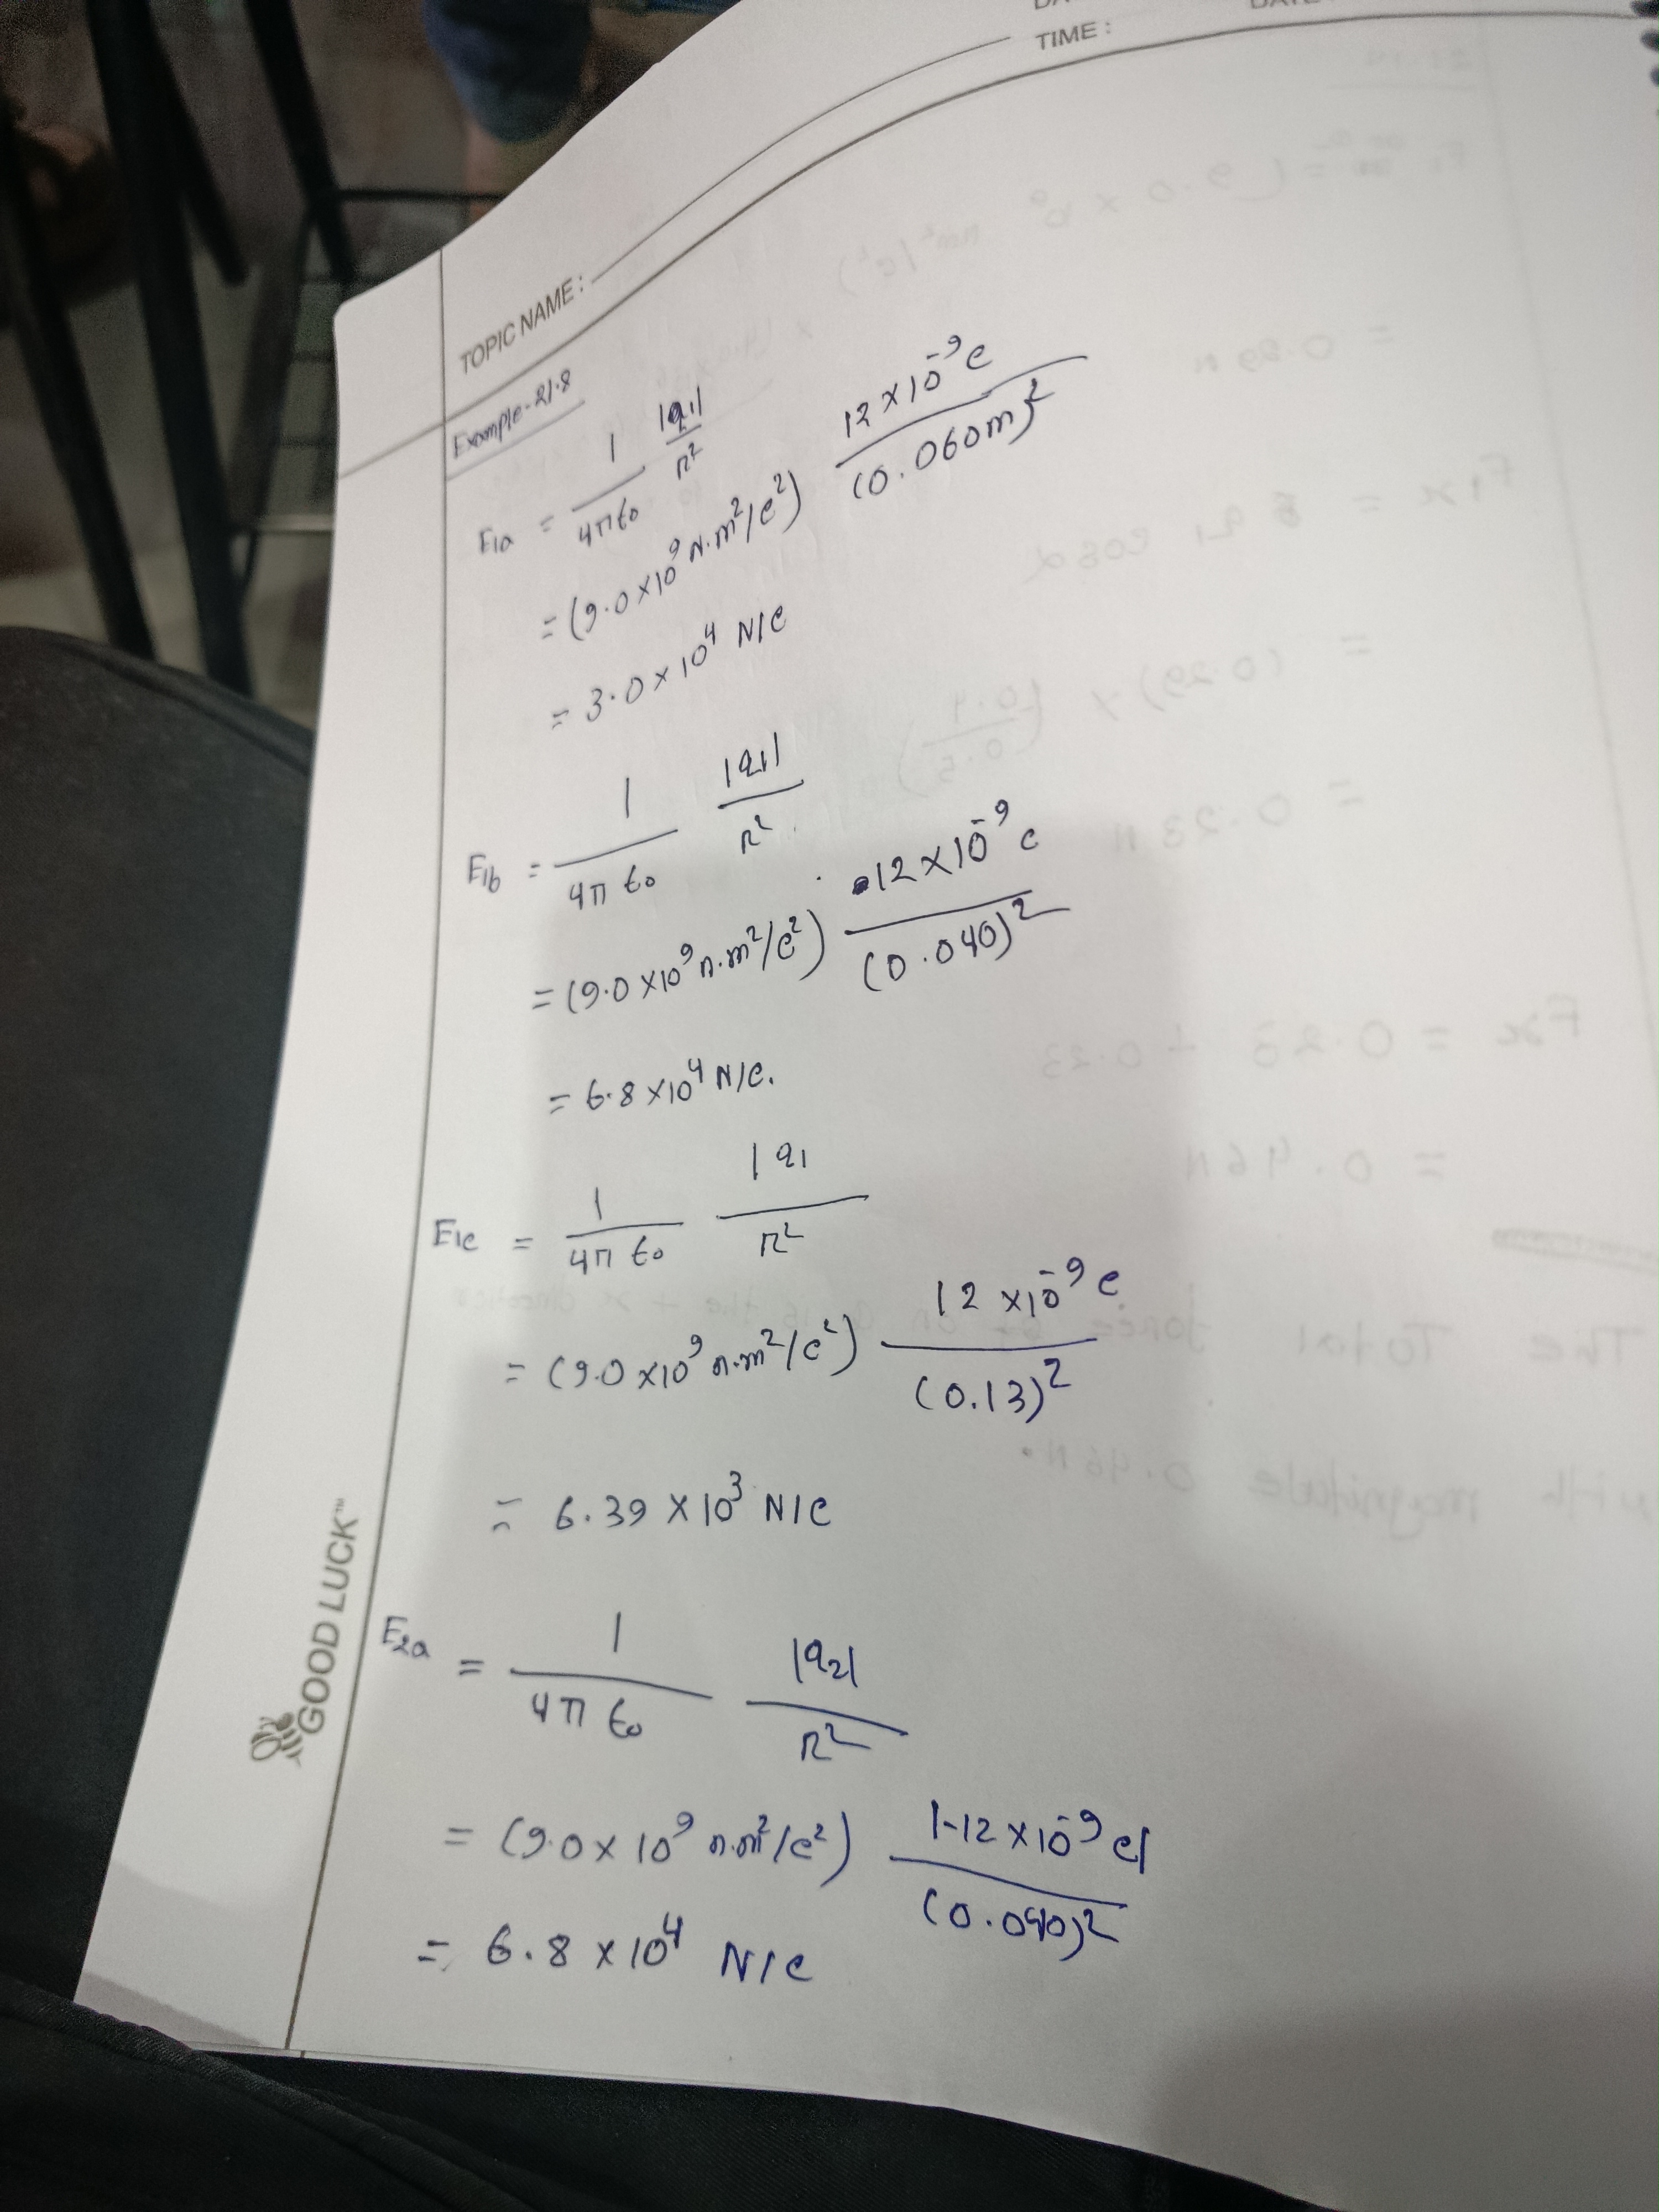 TIME :
TOPIC NAME :
Example-21.8
E1a = 1/4π€0 |q1|/r²
= (9.0×10⁹ N.m²/c²) 12×10⁻⁹c/(0.060m)²
= 3.0×10⁴ N/C
E1b = 1/4π€0 |q1|/r²
= (9.0×10⁹ n.m²/c²) 12×10⁻⁹c/(0.040)²
= 6.8×10⁴ N/C.
E1c = 1/4π€0 |q1/r²
= (9.0×10⁹ n.m²/c²) 12×10⁻⁹c/(0.13)²
= 6.39×10³ N/C
E2a = 1/4π€0 |q2|/r²
= (9.0×10⁹ n.m²/c²) |-12×10⁻⁹c|/(0.040)²
= 6.8×10⁴ N/C
GOOD LUCK™